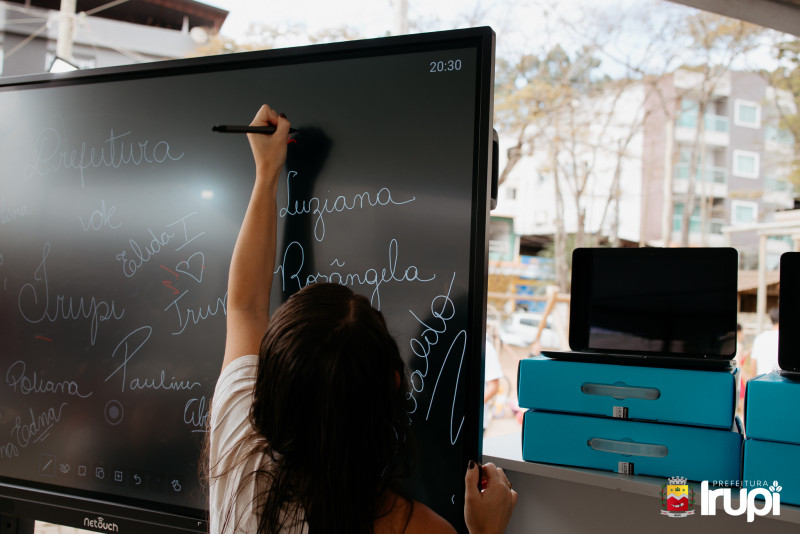 20:30
Prefeitura
Luziana
vok
Elida
I
♡
Irup
Rosângela
Irupi
Poliana
Paulinn
Edna
netouch
PREFEITURA
Irupi